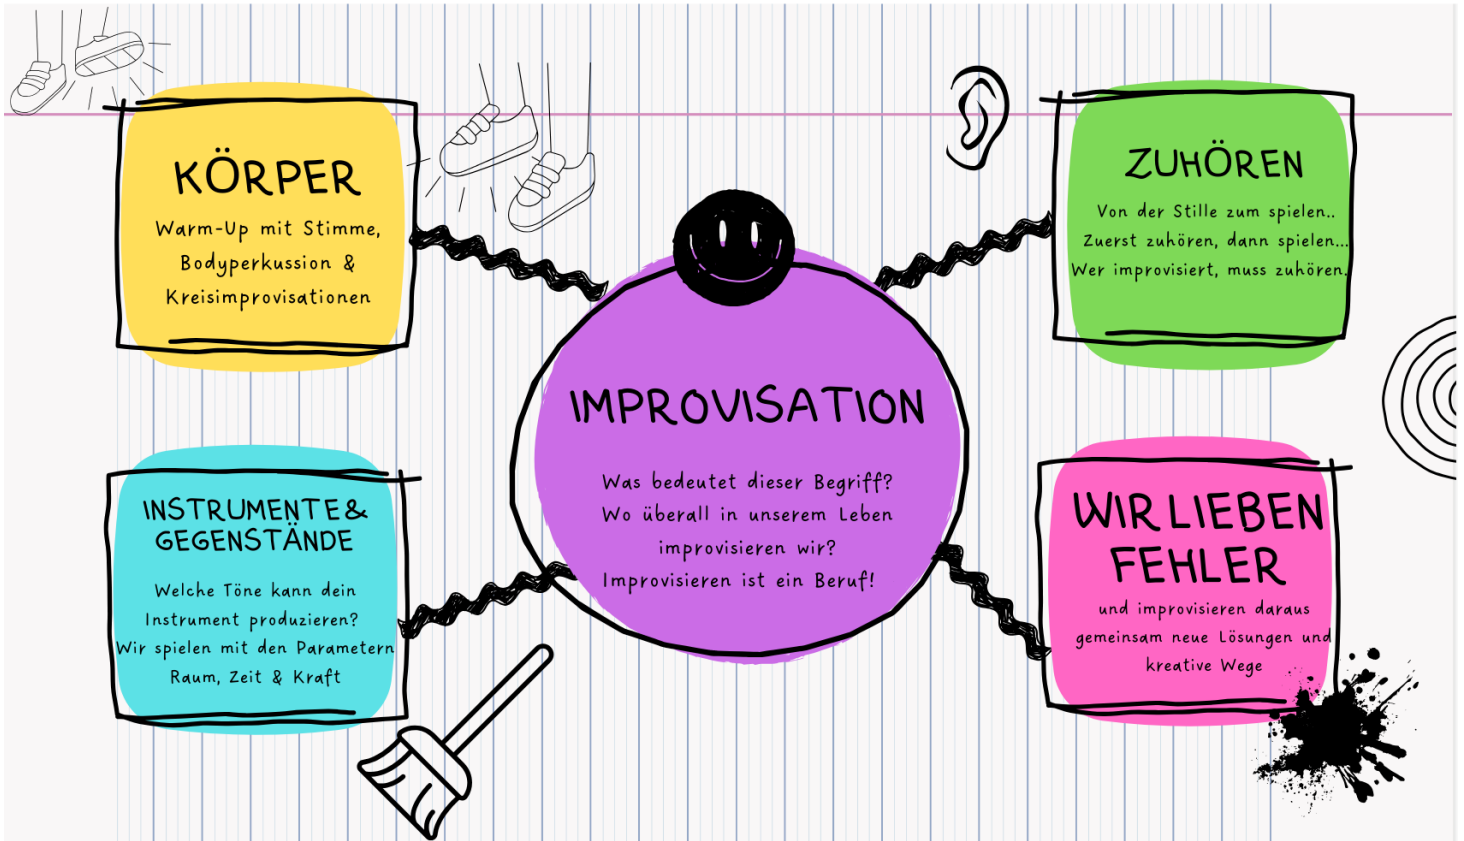 KÖRPER
Warm-Up mit Stimme,
Bodyperkussion &
Kreisimprovisationen
ZUHÖREN
Von der Stille zum spielen..
Zuerst zuhören, dann spielen...
Wer improvisiert, muss zuhören.
IMPROVISATION
Was bedeutet dieser Begriff?
Wo überall in unserem Leben
improvisieren wir?
Improvisieren ist ein Beruf!
INSTRUMENTE &
GEGENSTÄNDE
Welche Töne kann dein
Instrument produzieren?
Wir spielen mit den Parametern
Raum, Zeit & Kraft
WIR LIEBEN
FEHLER
und improvisieren daraus
gemeinsam neue Lösungen und
kreative Wege